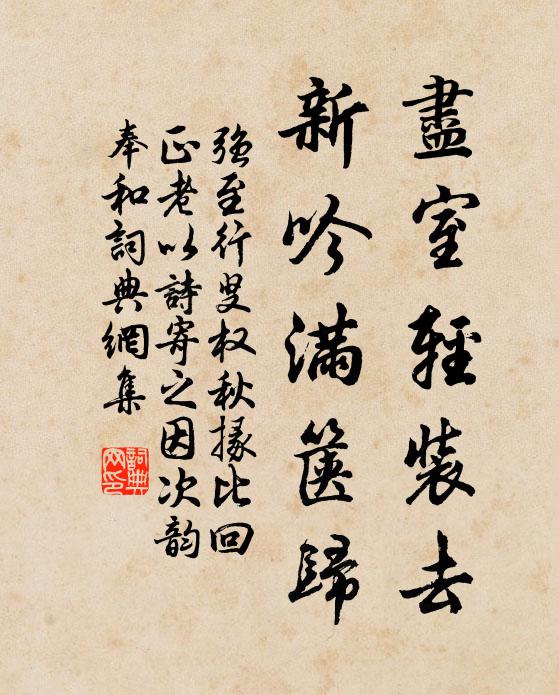 盡室輕裝去
新吟滿箧歸
強至行叟权秋掾比回
正老以詩寄之因次韵
奉和詞典網集
詞典
网印